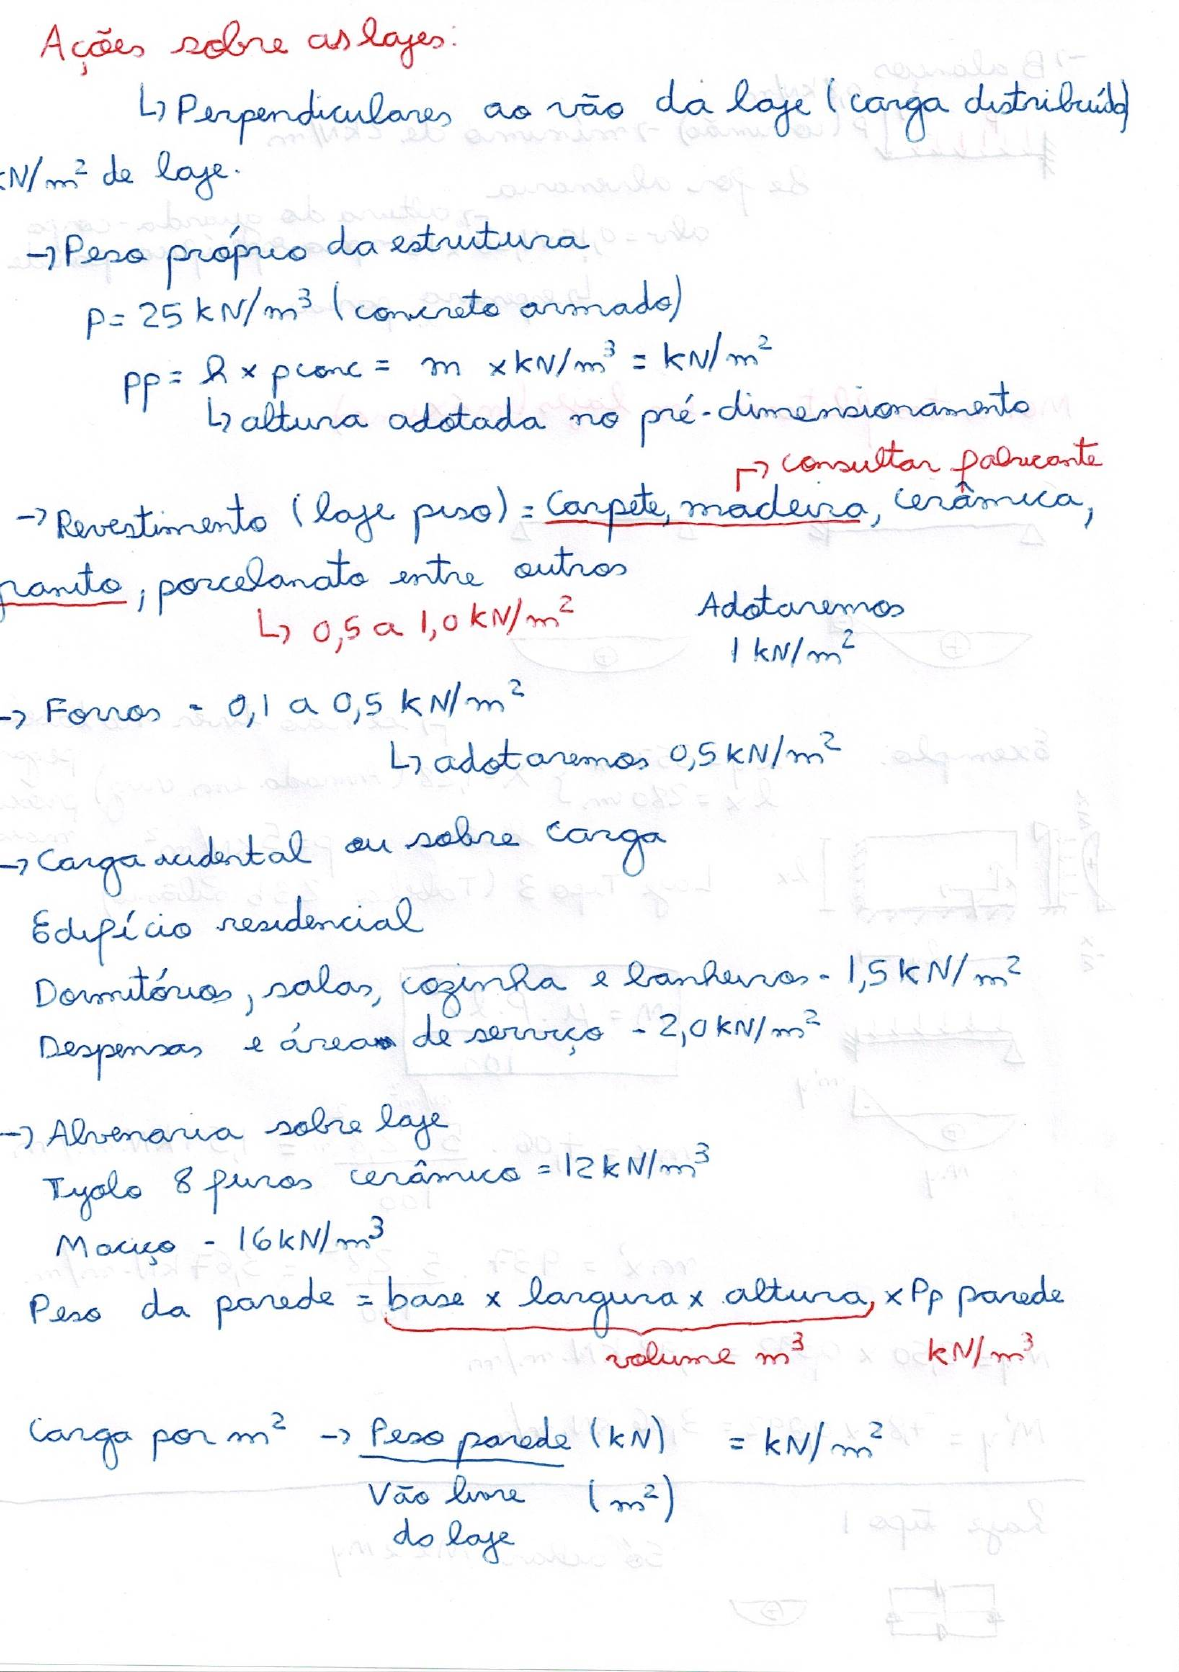 Ações sobre as lajes:
↳ Perpendiculares ao vão da laje (carga distribuída)
kN/m² de laje.
→ Peso próprio da estrutura
P= 25 kN/m³ (concreto armado)
pp = h x pconc = m x kN/m³ = kN/m²
↳ altura adotada no pré-dimensionamento
↱ consultar fabricante
→ Revestimento (laje piso) = Carpete, madeira, cerâmica,
granito, porcelanato entre outros
↳ 0,5 a 1,0 kN/m²
Adotaremos
1 kN/m²
→ Forros - 0,1 a 0,5 kN/m²
↳ adotaremos 0,5 kN/m²
→ Carga acidental ou sobre carga
Edifício residencial
Dormitórios, salas, cozinha e banheiros - 1,5 kN/m²
Despensas e áreas de serviço - 2,0 kN/m²
→ Alvenaria sobre laje
Tijolo 8 furos cerâmico = 12 kN/m³
Maciço - 16 kN/m³
Peso da parede = base x largura x altura x Pp parede
volume m³ kN/m³
Carga por m² → Peso parede (kN) = kN/m²
Vão livre (m²)
da laje